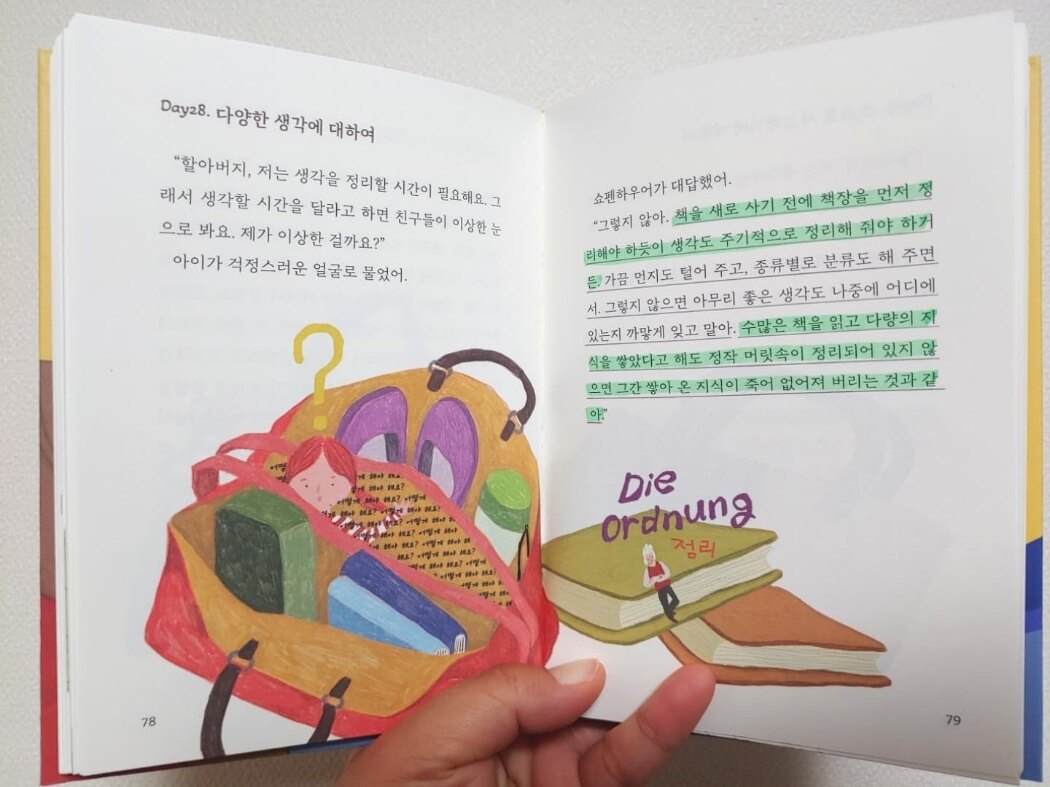 Day28. 다양한 생각에 대하여
“할아버지, 저는 생각을 정리할 시간이 필요해요. 그
래서 생각할 시간을 달라고 하면 친구들이 이상한 눈
으로 봐요. 제가 이상한 걸까요?”
아이가 걱정스러운 얼굴로 물었어.
어떻게 해야 해요?
해야 해요? 어떻게
어떻게 해야 해요?
78
쇼펜하우어가 대답했어.
“그렇지 않아. 책을 새로 사기 전에 책장을 먼저 정
리해야 하듯이 생각도 주기적으로 정리해 줘야 하거
든. 가끔 먼지도 털어 주고, 종류별로 분류도 해 주면
서. 그렇지 않으면 아무리 좋은 생각도 나중에 어디에
있는지 까맣게 잊고 말아. 수많은 책을 읽고 다량의 지
식을 쌓았다고 해도 정작 머릿속이 정리되어 있지 않
으면 그간 쌓아 온 지식이 죽어 없어져 버리는 것과 같
아.”
Die
Ordnung
정리
79